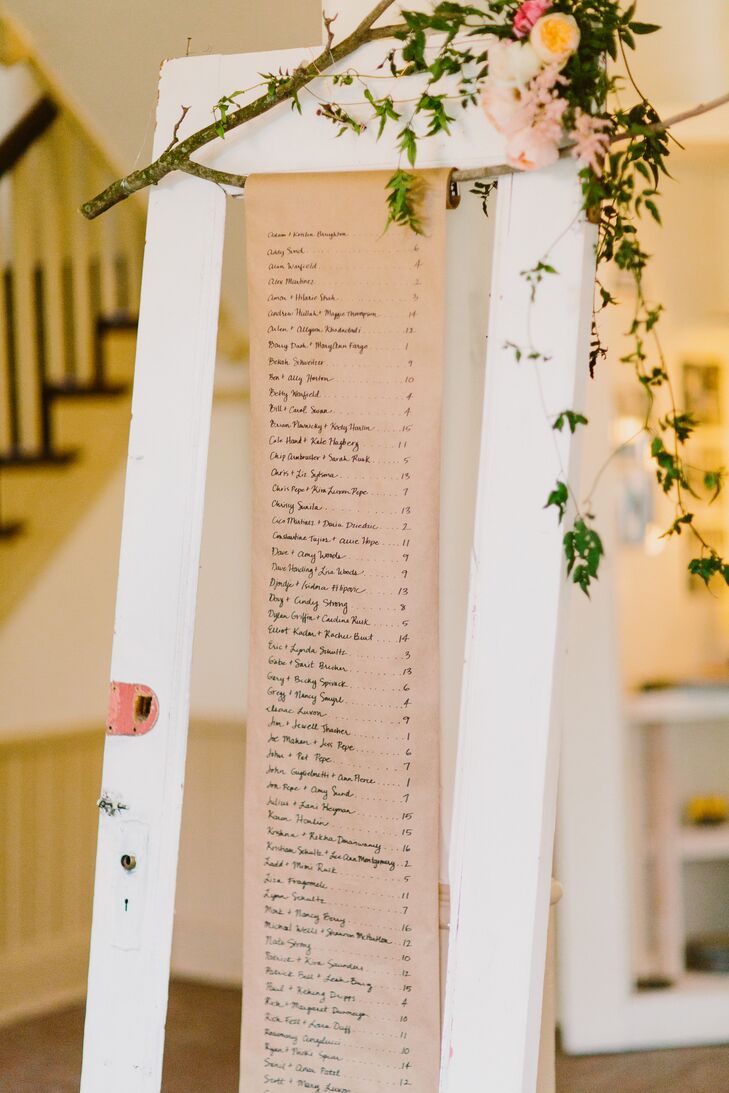 Adam + Kristin Broughton
Ashly Sund 6
Alan Warfield 4
Alex Martinez 2
Amon + Hilarie Shah 3
Andrew Hullah + Maggie Thompson 14
Arlen + Allyson 13
Barry Dunk + MaryAnn Fargo 1
Bekah Schweiter 9
Ben + Ally Horton 10
Betty Warfield 4
Bill + Carol Swan 4
Brian Pawnicky + Kody Harlin 15
Cale Hand + Kate Hagberg 11
Chip Armbruster + Sarah Rusk 5
Chris + Liz Sytsma 13
Chris Pepe + Kim Luxon Pepe 7
Christy Sunila 13
Cico Martinez + Daria Dziedzic 2
Constantine + Allie Hope 11
Dave + Amy Woods 9
Dave Harding + Lisa Woods 9
Djordje + Isidora Filipovic 13
Doug + Cindy Strong 8
Dylan Griffin + Caroline Rusk 5
Elliot Kadar + Rachel Burt 14
Eric + Lynda Schultz 3
Gabe + Sarit Brecher 13
Gary + Becky Spivack 6
Gregg + Nancy Smyrl 4
Isaac Luxon 9
Jim + Jewell Thacher 1
Joe Mahan + Juss Pepe 6
John + Pat Pepe 7
John Guglielmetti + Ann Pierce 1
Jon Pepe + Amy Sund 7
Julius + Lani Heyman 15
Karen Hanlin 15
Krishna + Rekha 16
Krisham Schultz + Lee Ann Montgomery 2
Ladd + Mimi Rusk 5
Lisa Fragomele 11
Lynn Schultz 7
Mark + Nancy Berry 16
Michael Wells + Shannon McCutllen 12
Nate Strong 10
Patrick + Kira Saunders 12
Patrick Bell + Leah Burg 15
Paul + Dripps 4
Rick + Margaret 10
Rick Fett + Lora Duff 11
Rosemary 10
Ryan + Spear 14
Samil + Ana Patel 12
Scott + Mary Luxon